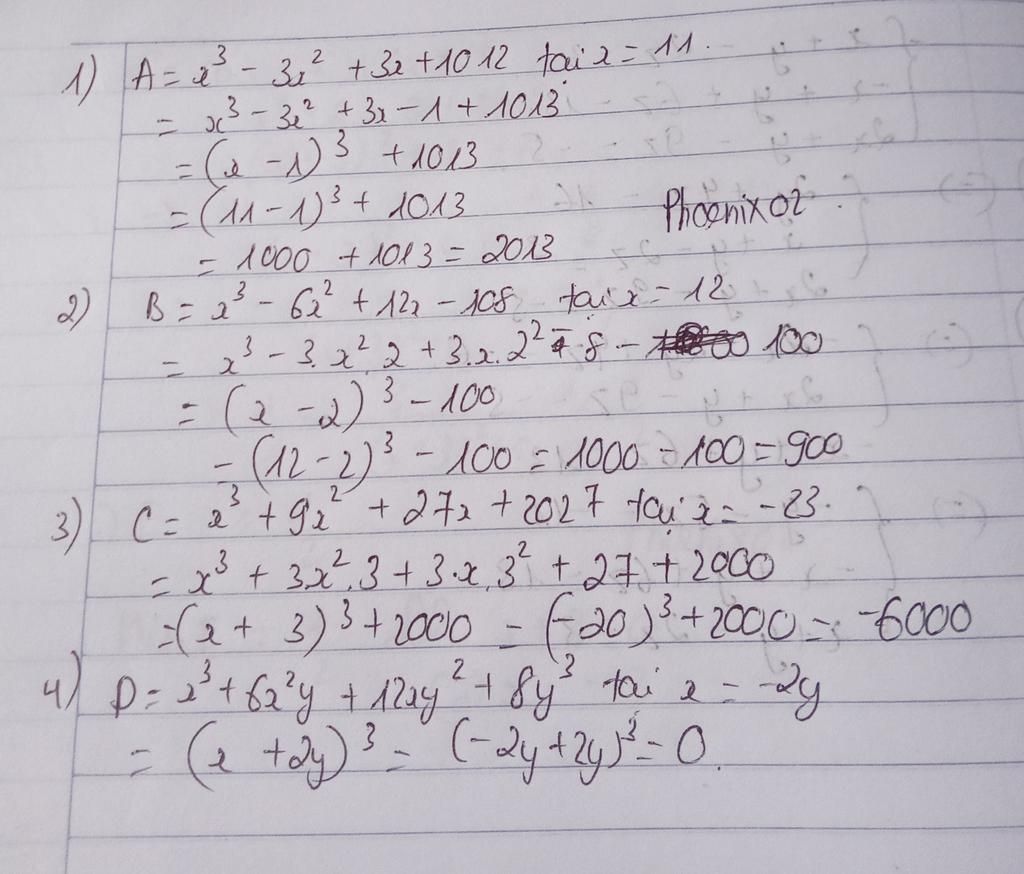 1) A = x³ - 3x² + 3x + 1012 tại x = 11.
= x³ - 3x² + 3x - 1 + 1013
= (x - 1)³ + 1013
= (11 - 1)³ + 1013
Phoenix02.
= 1000 + 1013 = 2013
2) B = x³ - 6x² + 12x - 108 tại x = 12
= x³ - 3.x².2 + 3.x.2² - 8 - 100
= (x - 2)³ - 100
= (12 - 2)³ - 100 = 1000 - 100 = 900
3) C = x³ + 9x² + 27x + 2027 tại x = -23.
= x³ + 3x².3 + 3.x.3² + 27 + 2000
= (x + 3)³ + 2000 = (-20)³ + 2000 = -6000
4) D = x³ + 6x²y + 12xy² + 8y³ tại x = -2y
= (x + 2y)³ = (-2y + 2y)³ = 0.